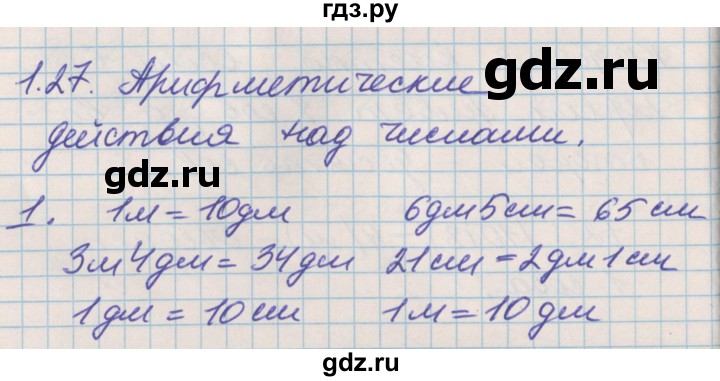 гдз.ру
1.27. Арифметические
gdz.ru
действия над числами.
gdz.ru
1. 1м = 10дм 6дм5см = 65см
3м4дм = 34дм 21см = 2дм1см
1дм = 10см 1м = 10дм
gdz.ru